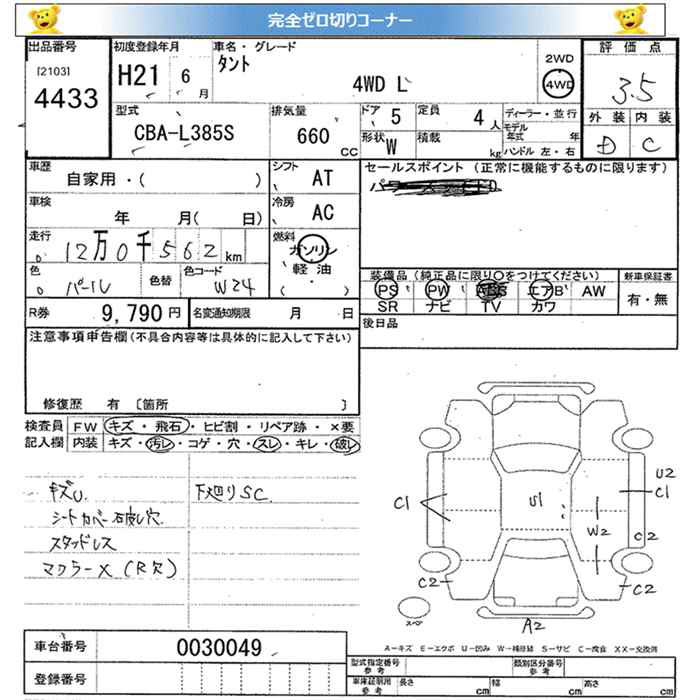 完全ゼロ切りコーナー
出品番号
[2103]
4433
初度登録年月
H21 6 月
車名・グレード
タント
4WD L
2WD
4WD
評価点
3.5
外装 内装
D C
型式
CBA-L385S
排気量
660 CC
ドア 5
定員 4 人
形状 W
積載 kg
ディーラー・並行
モデル年式 年
ハンドル 左・右
車歴
自家用・( )
シフト AT
セールスポイント (正常に機能するものに限ります)
車検
年 月( 日)
冷房 AC
走行
12万0千562km
燃料
ガソリン
軽油
( )
色
パール
色替
色コード
W24
装備品(純正品に限り○をつけてください)
PS PW ABS エアB AW
SR ナビ TV カワ
新車保証書
有・無
R券 9,790 円
名変通知期限 月 日
後日品
注意事項申告欄(不具合内容等は具体的に記入して下さい)
修復歴 有 [箇所 ]
検査員記入欄
FW キズ・飛石・ヒビ割・リペア跡・×要
内装 キズ・汚レ・コゲ・穴・スレ・キレ・破レ
キズU.
シートカバー破レ穴.
スタッドレス
マフラーX (R欠)
下廻りSC.
C1
U1
U2
C1
W2
C2
C2
C2
A2
スペア
A-キズ E-エクボ U-凹み W-補修跡 S-サビ C-腐食 XX-交換済
車台番号 0030049
登録番号
型式指定番号 参考
類別区分番号 参考
車庫証明用 参考 長さ cm 幅 cm 高さ cm